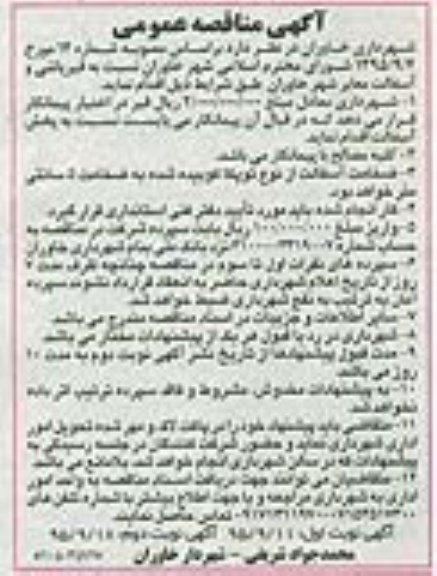 آگهی مناقصه عمومی
شهرداری خاوران در نظر دارد براساس مصوبه شماره ۱۲ مورخ
۱۳۹۵/۹/۲ شورای محترم اسلامی شهر خاوران نسبت به قیرپاشی و
آسفالت معابر شهر خاوران طبق شرایط ذیل اقدام نماید.
۱- شهرداری معادل مبلغ ریال قیر در اختیار پیمانکار
قرار می دهد که در قبال آن پیمانکار می بایست نسبت به پخش
آسفالت اقدام نماید.
۲- کلیه مصالح با پیمانکار می باشد.
۳- ضخامت آسفالت از نوع توپکا کوبیده شده به ضخامت ۵ سانتی
متر خواهد بود.
۴- کار انجام شده باید مورد تأیید دفتر فنی استانداری قرار گیرد.
۵- واریز مبلغ ریال بابت سپرده شرکت در مناقصه به
حساب شماره نزد بانک ملی بنام شهرداری خاوران
۶- سپرده های نفرات اول تا سوم در مناقصه چنانچه ظرف مدت ۷
روز از تاریخ اعلام شهرداری حاضر به انعقاد قرارداد نشوند سپرده
آنان به ترتیب به نفع شهرداری ضبط خواهد شد.
۷- سایر اطلاعات و جزییات در اسناد مناقصه مندرج می باشد.
۸- شهرداری در رد یا قبول هر یک از پیشنهادات مختار می باشد.
۹- مدت قبول پیشنهادها از تاریخ نشر آگهی نوبت دوم به مدت ۱۰
روز می باشد.
۱۰- به پیشنهادات مخدوش، مشروط و فاقد سپرده ترتیب اثر داده
نخواهد شد.
۱۱- متقاضی باید پیشنهاد خود را در پاکت لاک و مهر شده تحویل امور
اداری شهرداری نماید و حضور شرکت کنندگان در جلسه رسیدگی به
پیشنهادات که در سالن شهرداری انجام خواهد شد، بلامانع می باشد.
۱۲- متقاضیان می توانند جهت دریافت اسناد مناقصه به واحد امور
اداری به شهرداری مراجعه و یا جهت اطلاع بیشتر با شماره تلفن های
تماس حاصل نمایند.
آگهی نوبت اول: ۹۵/۹/۱۱ آگهی نوبت دوم: ۹۵/۹/۱۸
محمدجواد شریفی - شهردار خاوران